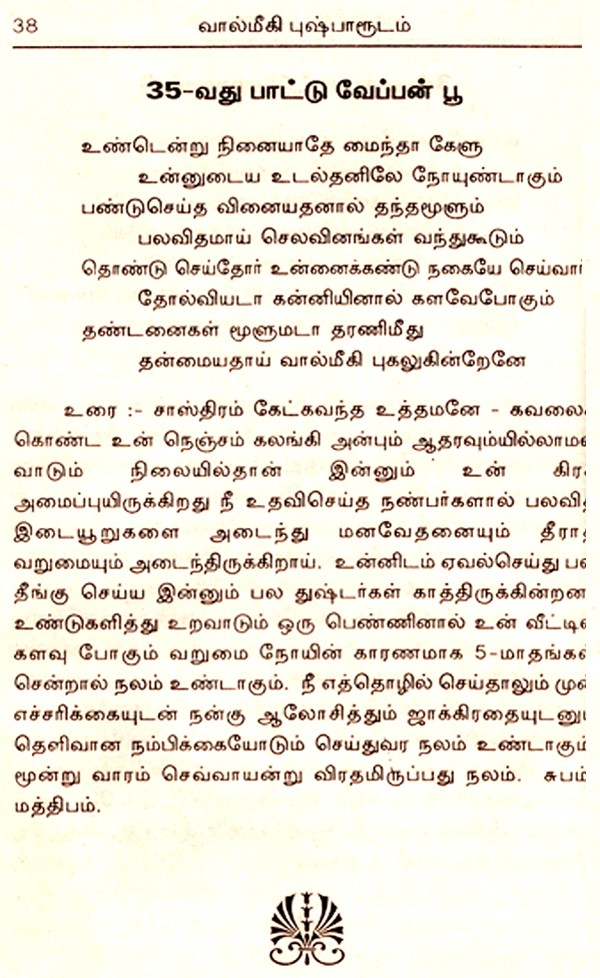 38 வால்மீகி புஷ்பாரூடம்
35-வது பாட்டு வேப்பன் பூ
உண்டென்று நினையாதே மைந்தா கேளு
உன்னுடைய உடல்தனிலே நோயுண்டாகும்
பண்டுசெய்த வினையதனால் தந்தமூளும்
பலவிதமாய் செலவினங்கள் வந்துகூடும்
தொண்டு செய்தோர் உன்னைக்கண்டு நகையே செய்வார்
தோல்வியடா கன்னியினால் களவேபோகும்
தண்டனைகள் மூளுமடா தரணிமீது
தன்மையதாய் வால்மீகி புகலுகின்றேனே
உரை :- சாஸ்திரம் கேட்கவந்த உத்தமனே -
கொண்ட உன் நெஞ்சம் கலங்கி அன்பும்
வாடும் நிலையில்தான் இன்னும் உன்
அமைப்புயிருக்கிறது நீ உதவிசெய்த நண்பர்களால்
இடையூறுகளை அடைந்து மனவேதனையும்
வறுமையும் அடைந்திருக்கிறாய். உன்னிடம் ஏவல்செய்து
தீங்கு செய்ய இன்னும் பல துஷ்டர்கள் காத்திருக்கின்றன
உண்டுகளித்து உறவாடும் ஒரு பெண்ணினால் உன்
களவு போகும் வறுமை நோயின் காரணமாக
சென்றால் நலம் உண்டாகும். நீ எத்தொழில் செய்தாலும்
எச்சரிக்கையுடன் நன்கு ஆலோசித்தும்
தெளிவான நம்பிக்கையோடும் செய்துவர நலம் உண்டாகும்
மூன்று வாரம் செவ்வாயன்று விரதமிருப்பது நலம். சுபம்
மத்திபம்.